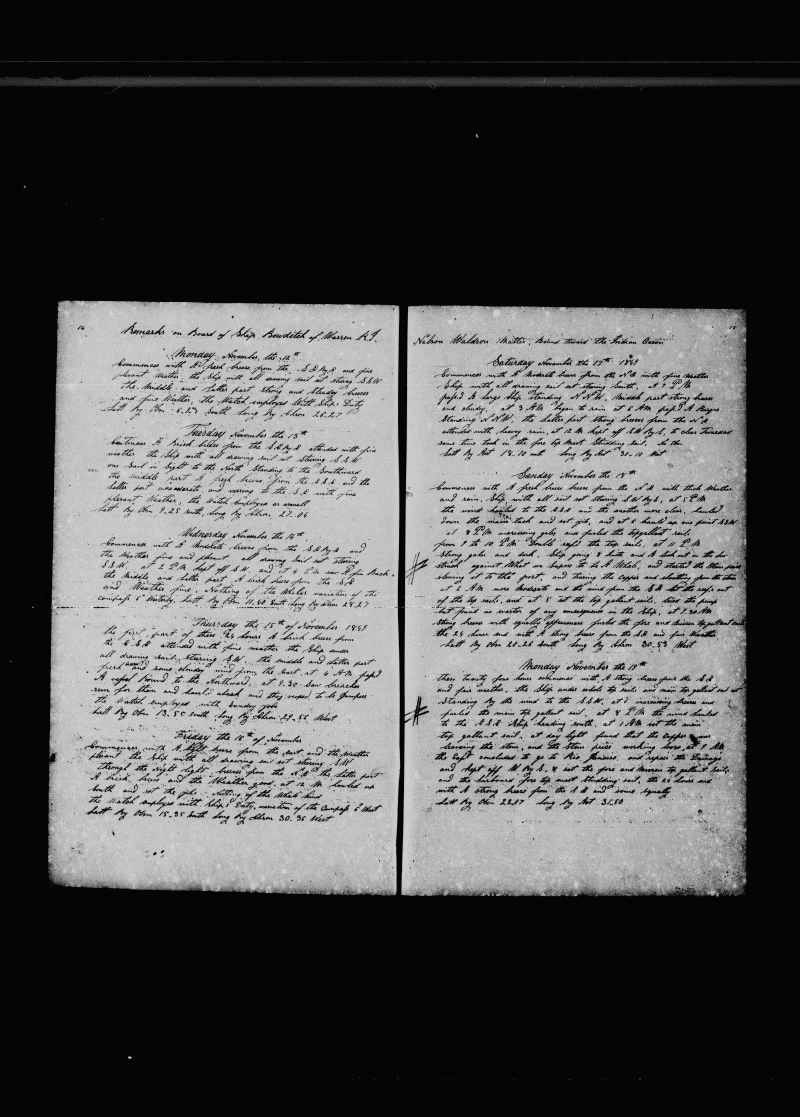 14
Remarks on Board of Ship Bowditch of Warren R.I.
Monday November the 12th
Commences with A fresh breeze from the S.E.By.E and fine
pleasant Weather the Ship with all drawing sail set stering S.S.W
the Middle and Latter part Strong and Steady breeze
and fine Weather, the Watch employed With Ship Duty
Latt By Obn 6.23 South Long By Chron 26.27
Tuesday November the 13th
Continues A fresh breeze from the S.E.By.E attended with fine
weather the Ship with all drawing sail set Stering S.S.W
one Sail in Sight to the North Standing to the Southward
the middle part A fresh breeze from the S.E.E and the
Latter part moderate and veering to the S.E with fine
pleasant Weather, the Watch employed as usuall
Latt By Obn 9.25 South, Long By Chron 27.04
Wednesday November the 14th
Commences with A Moderate breeze from the S.E.By.E and
the Weather fine and pleasant all drawing sail set stering
S.S.W. at 2 P.M kept off S.W, and at 4 P.M saw A fin Back,
the Middle and Latter part A brisk breeze from the S.E
and Weather fine, Nothing of the Whales variation of the
compass 5 Westerly, Latt By Obn 11.40 South Long By Chron 28.27
Thursday the 15th of November 1849
the first part of these 24 hours A brisk breeze from
the E.S.E attended with fine weather the Ship under
all drawing sail, Steering S.W the middle and Latter part
fresh and some cloudy wind from the East, at 4 A.M pass'd
A vessel Bound to the Northward, at 9.30 Saw breaches
run for them and haul'd aback and they proved to be Jumpers
the Watch employed with Sunday jobs
Latt By Obn 13.55 South Long By Chron 29.55 West
Friday the 16th of November
Commences with A light breeze from the East, and the Weather
pleasant the Ship with all drawing sail set stering S.W
through the Night light breeze from the N.E the Latter part
A brisk breeze and the Weather good, at 12 M hauled up
South and set the jibs Nothing of the Whale kind
the Watch employed with Ship's Duty, variation of the Compass 5 West
Latt By Obn 15.35 South Long By Chron 30.36 West
15
Nelson Waldron Master, Bound toward the Indian Ocean
Saturday November the 17th 1849
Commences with A Moderate breeze from the N.E with fine Weather
Ship with all drawing sail set stering South. At 2 P.M
pass'd A large Ship Standing N.N.W, Middle part strong breeze
and cloudy, at 3 A.M began to rain at 6 A.M pass'd A Barque
Standing N.N.W, the Latter part strong breeze from the N.E
attended with heavy rain, at 12 M kept off S.W.By.S, to clear Trinidad
same time took in the fore top Mast Studding Sail. No Obn
Latt By Act 18.10 South Long By Act 31.10 West
Sunday November the 18th
Commences with A fresh breeze from the N.E with thick Weather
and rain, Ship with all sail set stering S.W.By.S, at 5 P.M
the wind hauled to the and the weather more clear, hauled
down the main tack and set jib, and at 6 hauled up one point S.S.W
at 8 P.M increasing gales, and furled the top gallant sails
from 8 to 10 P.M Double reef'd the top sails, at 11 P.M
Strong gales and dark. Ship going 8 knots and A look out on the bow
struck against What we Supose to be A Whale, and started the Stem pieces
slewing it to the port, and tearing the Copper and sheathing from the stem
at 2 A.M more Moderate and the wind from the S.E let the reefs out
of the top sails, and at 5 set the top gallant sails, tried the pump
but found no water of any consequence in the Ship, at 9.30 A.M
strong breeze with squally appearances furled the fore and mizzen top gallant sails
the 24 hours end with A strong breeze from the S.E and fine Weather
Latt By Obn 20.26 South Long By Chron 30.53 West
Monday November the 19th
These twenty four hours commences with A strong breeze from the S.E
and fine weather, the Ship under whole top sails and main top gallant sail set
Standing By the wind to the S.S.W, at 5 increasing breeze and
furled the main top gallant sail, at 8 P.M the wind hauled
to the S.S.E Ship heading south, at 1 A.M set the main
top gallant sail, at day light found that the Copper was
leaving the stem, and the Stem pieces working loose, at 9 AM
the Capt concluded to go to Rio Janeiro, and repair the Damage
and kept off W.By.S, & set the fore and mizzen top gallant sails,
and the larboard fore top mast Studding sail, the 24 hours end
with A strong breeze from the S.E and some squally
Latt By Obn 22.07 Long By Act 31.50